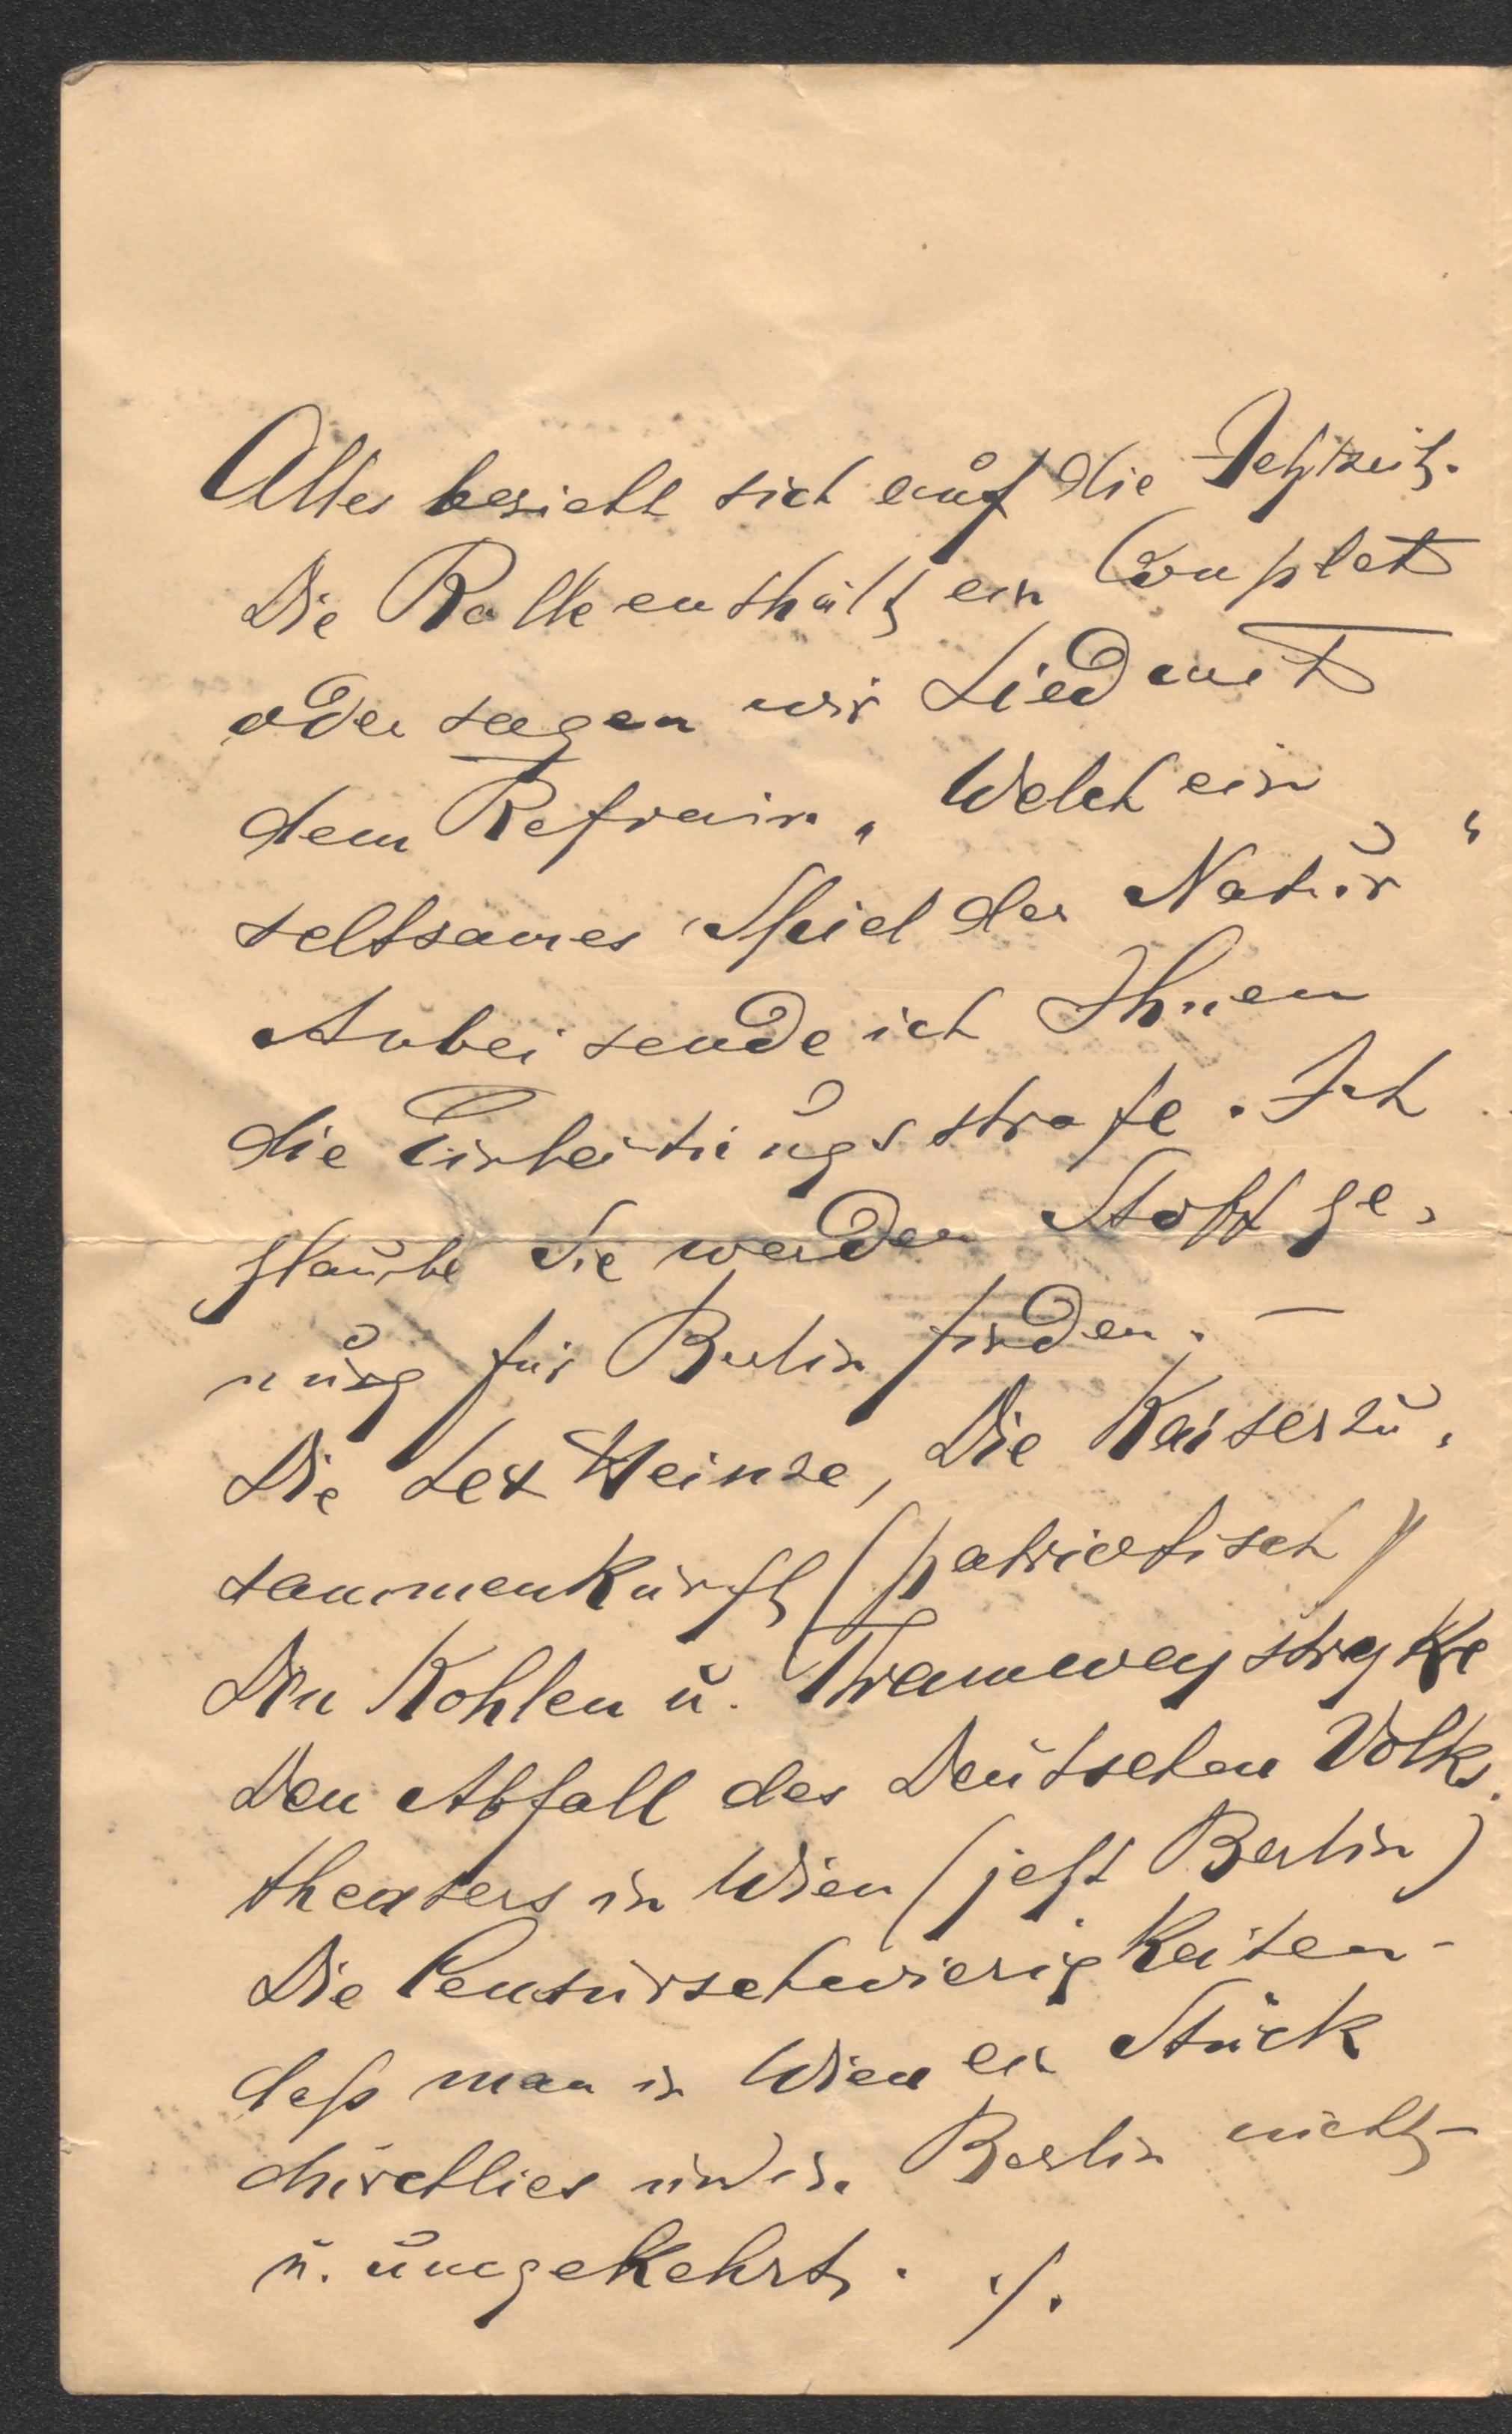 Alles bezieht sich auf die Jetztzeit.
Die Rolle enthält ein Couplet
oder sagen wir Lied mit
dem Refrain „Welch ein
seltsames Spiel der Natur“
Anbei sende ich Ihnen
die Einleitungsstrofe. Ich
glaube Sie werden Stoff ge-
nung für Berlin finden. —
Die Lex Heinze, Die Kaiserzu-
sammenkunft (patriotisch)
Den Kohlen u. Thramwaystryke
Den Abfall des Deutschen Volks-
theaters in Wien (jetzt Berlin)
Die Censurschwierigkeiten -
daß man in Wien ein Stück
durchlies und in Berlin nicht -
u. umgekehrt. ./.